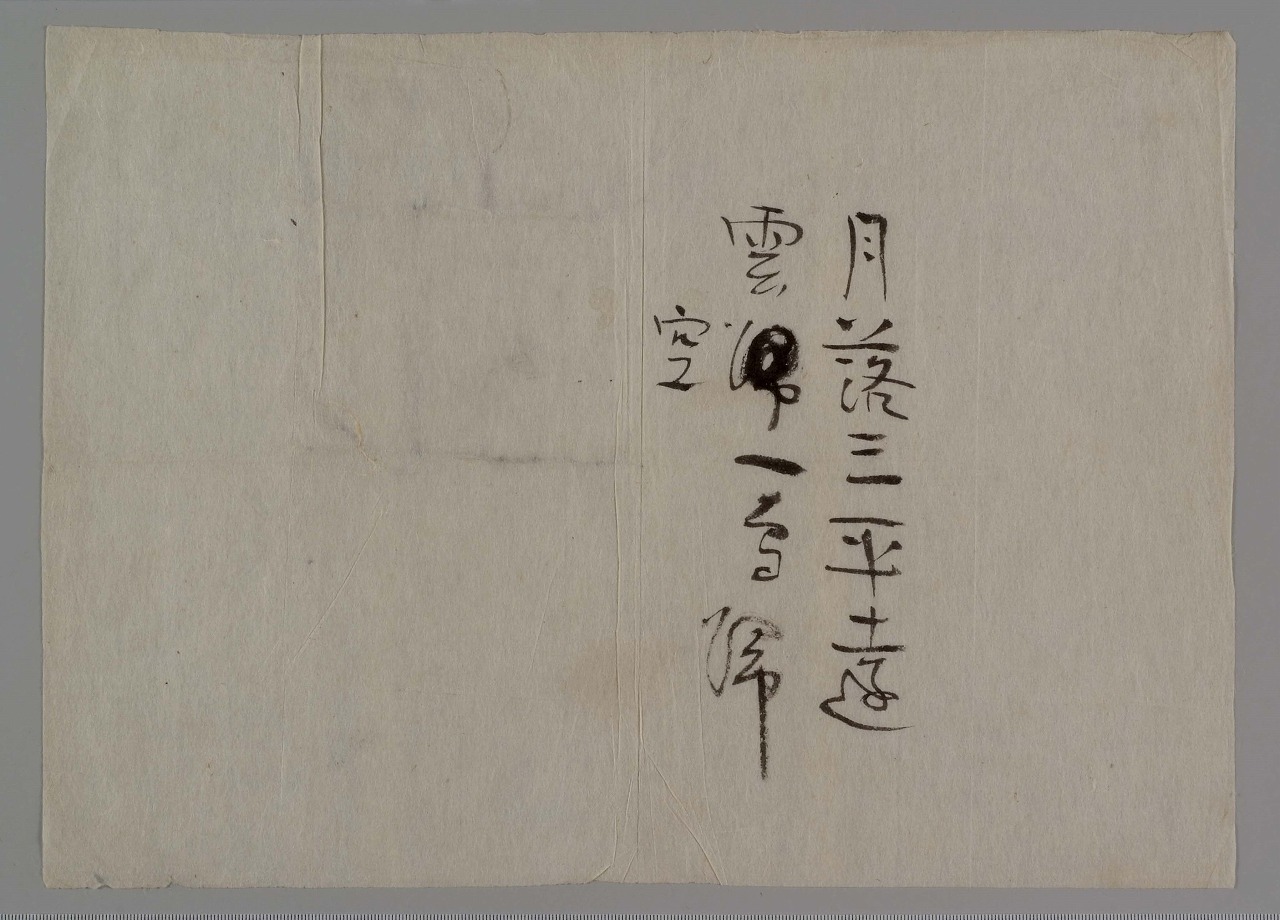 月落三平遠
雲帰一鳥帰
空